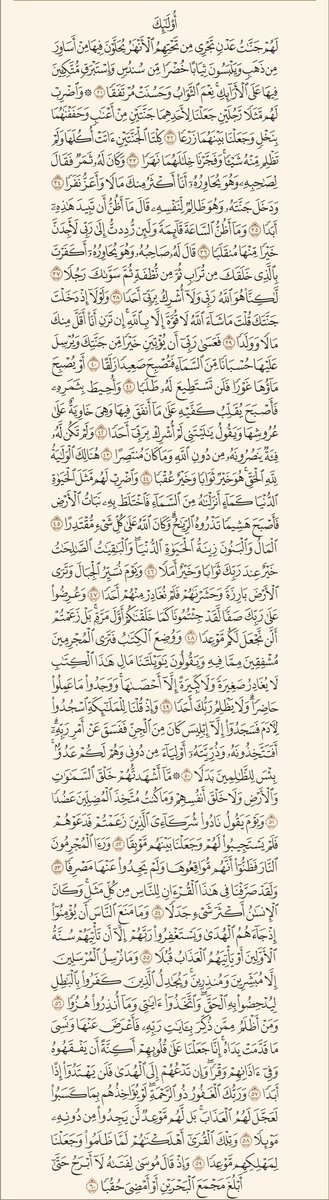 أُوْلَـٰٓئِكَ
لَهُمْ جَنَّـٰتُ عَدْنٍ تَجْرِى مِن تَحْتِهِمُ ٱلْأَنْهَـٰرُ يُحَلَّوْنَ فِيهَا مِنْ أَسَاوِرَ
مِن ذَهَبٍ وَيَلْبَسُونَ ثِيَابًا خُضْرًا مِّن سُندُسٍ وَإِسْتَبْرَقٍ مُّتَّكِـِٔينَ
فِيهَا عَلَى ٱلْأَرَآئِكِ ۚ نِعْمَ ٱلثَّوَابُ وَحَسُنَتْ مُرْتَفَقًا ٣١ ۞ وَٱضْرِبْ
لَهُم مَّثَلًا رَّجُلَيْنِ جَعَلْنَا لِأَحَدِهِمَا جَنَّتَيْنِ مِنْ أَعْنَـٰبٍ وَحَفَفْنَـٰهُمَا
بِنَخْلٍ وَجَعَلْنَا بَيْنَهُمَا زَرْعًا ٣٢ كِلْتَا ٱلْجَنَّتَيْنِ ءَاتَتْ أُكُلَهَا وَلَمْ
تَظْلِم مِّنْهُ شَيْـًٔا ۚ وَفَجَّرْنَا خِلَـٰلَهُمَا نَهَرًا ٣٣ وَكَانَ لَهُۥ ثَمَرٌ فَقَالَ
لِصَـٰحِبِهِۦ وَهُوَ يُحَاوِرُهُۥٓ أَنَا۠ أَكْثَرُ مِنكَ مَالًا وَأَعَزُّ نَفَرًا ٣٤
وَدَخَلَ جَنَّتَهُۥ وَهُوَ ظَالِمٌ لِّنَفْسِهِۦ قَالَ مَآ أَظُنُّ أَن تَبِيدَ هَـٰذِهِۦٓ
أَبَدًا ٣٥ وَمَآ أَظُنُّ ٱلسَّاعَةَ قَآئِمَةً وَلَئِن رُّدِدتُّ إِلَىٰ رَبِّى لَأَجِدَنَّ
خَيْرًا مِّنْهَا مُنقَلَبًا ٣٦ قَالَ لَهُۥ صَاحِبُهُۥ وَهُوَ يُحَاوِرُهُۥٓ أَكَفَرْتَ
بِٱلَّذِى خَلَقَكَ مِن تُرَابٍ ثُمَّ مِن نُّطْفَةٍ ثُمَّ سَوَّىٰكَ رَجُلًا ٣٧
لَّـٰكِنَّا۠ هُوَ ٱللَّهُ رَبِّى وَلَآ أُشْرِكُ بِرَبِّىٓ أَحَدًا ٣٨ وَلَوْلَآ إِذْ دَخَلْتَ
جَنَّتَكَ قُلْتَ مَا شَآءَ ٱللَّهُ لَا قُوَّةَ إِلَّا بِٱللَّهِ ۚ إِن تَرَنِ أَنَا۠ أَقَلَّ مِنكَ
مَالًا وَوَلَدًا ٣٩ فَعَسَىٰ رَبِّىٓ أَن يُؤْتِيَنِ خَيْرًا مِّن جَنَّتِكَ وَيُرْسِلَ
عَلَيْهَا حُسْبَانًا مِّنَ ٱلسَّمَآءِ فَتُصْبِحَ صَعِيدًا زَلَقًا ٤٠ أَوْ يُصْبِحَ
مَآؤُهَا غَوْرًا فَلَن تَسْتَطِيعَ لَهُۥ طَلَبًا ٤١ وَأُحِيطَ بِثَمَرِهِۦ
فَأَصْبَحَ يُقَلِّبُ كَفَّيْهِ عَلَىٰ مَآ أَنفَقَ فِيهَا وَهِىَ خَاوِيَةٌ عَلَىٰ
عُرُوشِهَا وَيَقُولُ يَـٰلَيْتَنِى لَمْ أُشْرِكْ بِرَبِّىٓ أَحَدًا ٤٢ وَلَمْ تَكُن لَّهُۥ
فِئَةٌ يَنصُرُونَهُۥ مِن دُونِ ٱللَّهِ وَمَا كَانَ مُنتَصِرًا ٤٣ هُنَالِكَ ٱلْوَلَـٰيَةُ
لِلَّهِ ٱلْحَقِّ ۚ هُوَ خَيْرٌ ثَوَابًا وَخَيْرٌ عُقْبًا ٤٤ وَٱضْرِبْ لَهُم مَّثَلَ ٱلْحَيَوٰةِ
ٱلدُّنْيَا كَمَآءٍ أَنزَلْنَـٰهُ مِنَ ٱلسَّمَآءِ فَٱخْتَلَطَ بِهِۦ نَبَاتُ ٱلْأَرْضِ
فَأَصْبَحَ هَشِيمًا تَذْرُوهُ ٱلرِّيَـٰحُ ۗ وَكَانَ ٱللَّهُ عَلَىٰ كُلِّ شَىْءٍ مُّقْتَدِرًا ٤٥
ٱلْمَالُ وَٱلْبَنُونَ زِينَةُ ٱلْحَيَوٰةِ ٱلدُّنْيَا ۖ وَٱلْبَـٰقِيَـٰتُ ٱلصَّـٰلِحَـٰتُ
خَيْرٌ عِندَ رَبِّكَ ثَوَابًا وَخَيْرٌ أَمَلًا ٤٦ وَيَوْمَ نُسَيِّرُ ٱلْجِبَالَ وَتَرَى
ٱلْأَرْضَ بَارِزَةً وَحَشَرْنَـٰهُمْ فَلَمْ نُغَادِرْ مِنْهُمْ أَحَدًا ٤٧ وَعُرِضُوا۟
عَلَىٰ رَبِّكَ صَفًّا لَّقَدْ جِئْتُمُونَا كَمَا خَلَقْنَـٰكُمْ أَوَّلَ مَرَّةٍۭ ۚ بَلْ زَعَمْتُمْ
أَلَّن نَّجْعَلَ لَكُم مَّوْعِدًا ٤٨ وَوُضِعَ ٱلْكِتَـٰبُ فَتَرَى ٱلْمُجْرِمِينَ
مُشْفِقِينَ مِمَّا فِيهِ وَيَقُولُونَ يَـٰوَيْلَتَنَا مَالِ هَـٰذَا ٱلْكِتَـٰبِ
لَا يُغَادِرُ صَغِيرَةً وَلَا كَبِيرَةً إِلَّآ أَحْصَىٰهَا ۚ وَوَجَدُوا۟ مَا عَمِلُوا۟
حَاضِرًا ۗ وَلَا يَظْلِمُ رَبُّكَ أَحَدًا ٤٩ وَإِذْ قُلْنَا لِلْمَلَـٰٓئِكَةِ ٱسْجُدُوا۟
لِـَٔادَمَ فَسَجَدُوٓا۟ إِلَّآ إِبْلِيسَ كَانَ مِنَ ٱلْجِنِّ فَفَسَقَ عَنْ أَمْرِ رَبِّهِۦٓ ۗ
أَفَتَتَّخِذُونَهُۥ وَذُرِّيَّتَهُۥٓ أَوْلِيَآءَ مِن دُونِى وَهُمْ لَكُمْ عَدُوٌّۢ ۚ
بِئْسَ لِلظَّـٰلِمِينَ بَدَلًا ٥٠ ۞ مَّآ أَشْهَدتُّهُمْ خَلْقَ ٱلسَّمَـٰوَٰتِ
وَٱلْأَرْضِ وَلَا خَلْقَ أَنفُسِهِمْ وَمَا كُنتُ مُتَّخِذَ ٱلْمُضِلِّينَ عَضُدًا
٥١ وَيَوْمَ يَقُولُ نَادُوا۟ شُرَكَآءِىَ ٱلَّذِينَ زَعَمْتُمْ فَدَعَوْهُمْ
فَلَمْ يَسْتَجِيبُوا۟ لَهُمْ وَجَعَلْنَا بَيْنَهُم مَّوْبِقًا ٥٢ وَرَءَا ٱلْمُجْرِمُونَ
ٱلنَّارَ فَظَنُّوٓا۟ أَنَّهُم مُّوَاقِعُوهَا وَلَمْ يَجِدُوا۟ عَنْهَا مَصْرِفًا ٥٣
وَلَقَدْ صَرَّفْنَا فِى هَـٰذَا ٱلْقُرْءَانِ لِلنَّاسِ مِن كُلِّ مَثَلٍ ۚ وَكَانَ
ٱلْإِنسَـٰنُ أَكْثَرَ شَىْءٍ جَدَلًا ٥٤ وَمَا مَنَعَ ٱلنَّاسَ أَن يُؤْمِنُوٓا۟
إِذْ جَآءَهُمُ ٱلْهُدَىٰ وَيَسْتَغْفِرُوا۟ رَبَّهُمْ إِلَّآ أَن تَأْتِيَهُمْ سُنَّةُ
ٱلْأَوَّلِينَ أَوْ يَأْتِيَهُمُ ٱلْعَذَابُ قُبُلًا ٥٥ وَمَا نُرْسِلُ ٱلْمُرْسَلِينَ
إِلَّا مُبَشِّرِينَ وَمُنذِرِينَ ۚ وَيُجَـٰدِلُ ٱلَّذِينَ كَفَرُوا۟ بِٱلْبَـٰطِلِ
لِيُدْحِضُوا۟ بِهِ ٱلْحَقَّ ۖ وَٱتَّخَذُوٓا۟ ءَايَـٰتِى وَمَآ أُنذِرُوا۟ هُزُوًا ٥٦
وَمَنْ أَظْلَمُ مِمَّن ذُكِّرَ بِـَٔايَـٰتِ رَبِّهِۦ فَأَعْرَضَ عَنْهَا وَنَسِىَ
مَا قَدَّمَتْ يَدَاهُ ۚ إِنَّا جَعَلْنَا عَلَىٰ قُلُوبِهِمْ أَكِنَّةً أَن يَفْقَهُوهُ
وَفِىٓ ءَاذَانِهِمْ وَقْرًا ۖ وَإِن تَدْعُهُمْ إِلَى ٱلْهُدَىٰ فَلَن يَهْتَدُوٓا۟ إِذًا
أَبَدًا ٥٧ وَرَبُّكَ ٱلْغَفُورُ ذُو ٱلرَّحْمَةِ ۖ لَوْ يُؤَاخِذُهُم بِمَا كَسَبُوا۟
لَعَجَّلَ لَهُمُ ٱلْعَذَابَ ۚ بَل لَّهُم مَّوْعِدٌ لَّن يَجِدُوا۟ مِن دُونِهِۦ
مَوْئِلًا ٥٨ وَتِلْكَ ٱلْقُرَىٰٓ أَهْلَكْنَـٰهُمْ لَمَّا ظَلَمُوا۟ وَجَعَلْنَا
لِمَهْلِكِهِم مَّوْعِدًا ٥٩ وَإِذْ قَالَ مُوسَىٰ لِفَتَىٰهُ لَآ أَبْرَحُ حَتَّىٰٓ
أَبْلُغَ مَجْمَعَ ٱلْبَحْرَيْنِ أَوْ أَمْضِىَ حُقُبًا ٦٠